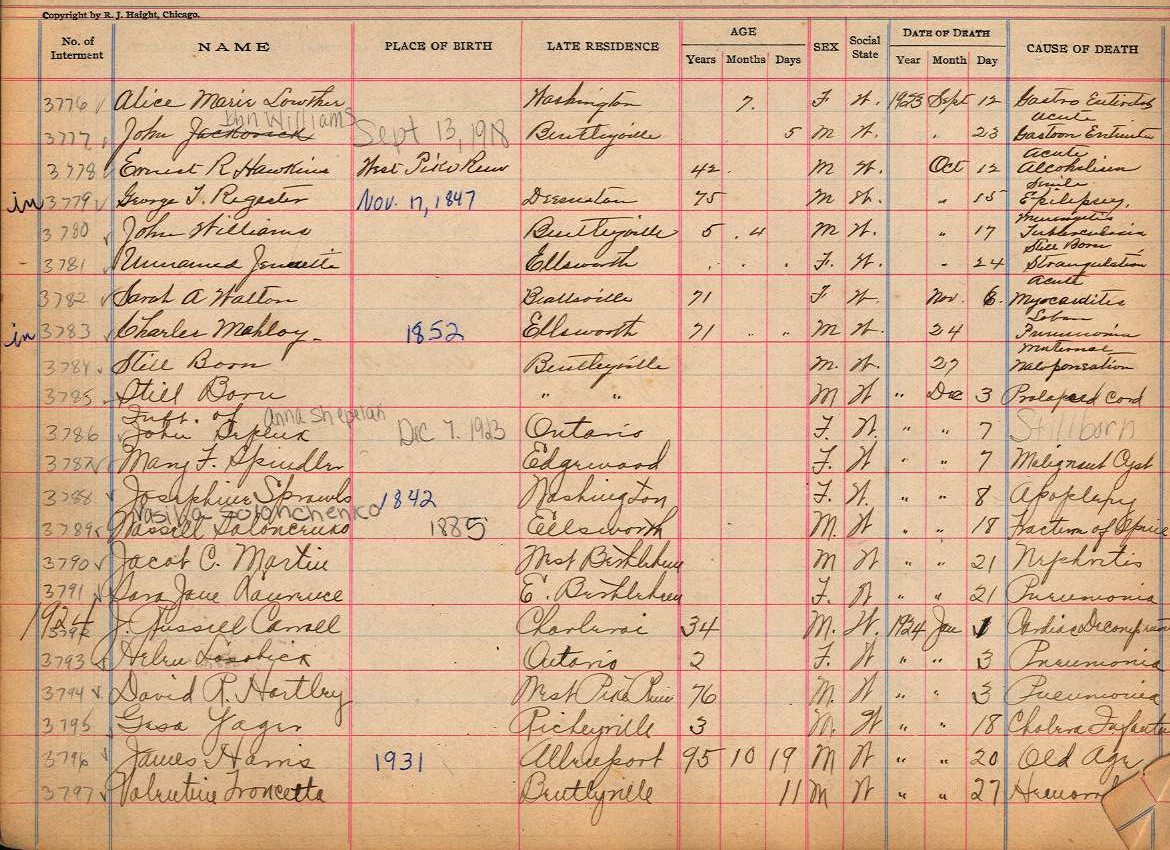 Copyright by R. J. Haight, Chicago.
No. of Interment NAME PLACE OF BIRTH LATE RESIDENCE AGE Years Months Days SEX Social State DATE OF DEATH Year Month Day CAUSE OF DEATH
3776 Alice Marie Lowther Washington 7. F W. 1923 Sept 12 Gastro
John Williams Acute
3777 John Sept 13, 1918 Bentleyville 5 M W. 23
Acute
3778 Ernest R Hawkins West Pike Run 42 M W. Oct 12 Alcoholism
Senile
in 3779 George T. Register Nov. 17, 1847 Deemston 75 M W. " 15 Epilepsy.
Meningitis
3780 John Williams Bentleyville 5 4 M W. " 17 Tuberculosis
Still Born
3781 Unnamed Ellsworth F. W. " 24 Strangulation
Acute
3782 Sarah A Walton Beallsville 71 F W Nov. 6. Myocarditis
Lobar
in 3783 Charles Mahloy. 1852 Ellsworth 71 " " M W. 24 Pneumonia
Maternal
3784 Still Born Bentleyville M. W 27
3785 Still Born " " M W " Dec 3 Prolapsed Cord
Inft. of Anna Shepelan
3786 John Dec 7. 1923 Ontario F. W. " " 7 Stillborn
3787 Mary F. Spindler Edgewood F. W " " 7 Malignant Cyst
3788 Josephine Sprowls 1842 Washington F. W " " 8 Apoplexy
Vasilva Solonchenko
3789 Wassill 1885 Ellsworth M. W " " 18 of Spine
3790 Jacob C. Martin West Bethlehem M W " " 21 Nephritis
3791 Sara Jane Lawrence E. Bethlehem F. W " " 21 Pneumonia
1924
3792 J. Russell Carroll Charleroi 34 M. W. 1924 Jan 1 Cardiac
3793 Helen Ontario 2 F. W " " 3 Pneumonia
3794 David R. Hartley West Pike Run 76 M. W " " 3 Pneumonia
3795 Yager Richeyville 3 M. W " " 18 Cholera
3796 James Harris 1931 Allenport 95 10 19 M W " " 20 Old Age
3797 Valentine Troncetta Bentleyville 11 M W " " 27